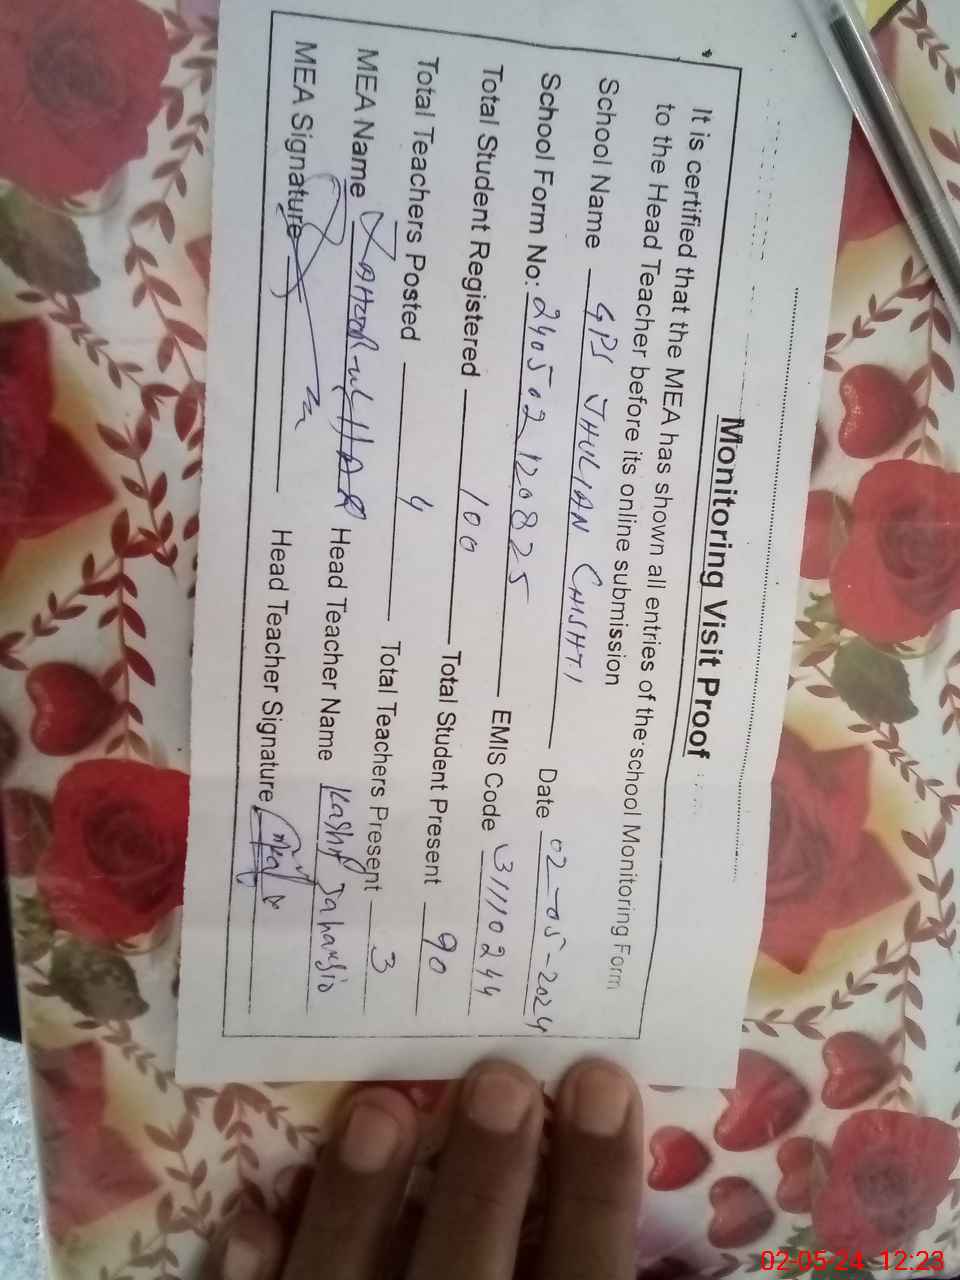 Monitoring Visit Proof
It is certified that the MEA has shown all entries of the school Monitoring Form
to the Head Teacher before its online submission
School Name GPS JHULIAN CHISHTI Date 02-05-2024
School Form No: 24050212 0825 EMIS Code 31110244
Total Student Registered 100 Total Student Present 90
Total Teachers Posted 4 Total Teachers Present 3
MEA Name ZAHOOR-ul-HAQ Head Teacher Name
MEA Signature Head Teacher Signature
02-05-24 12:23